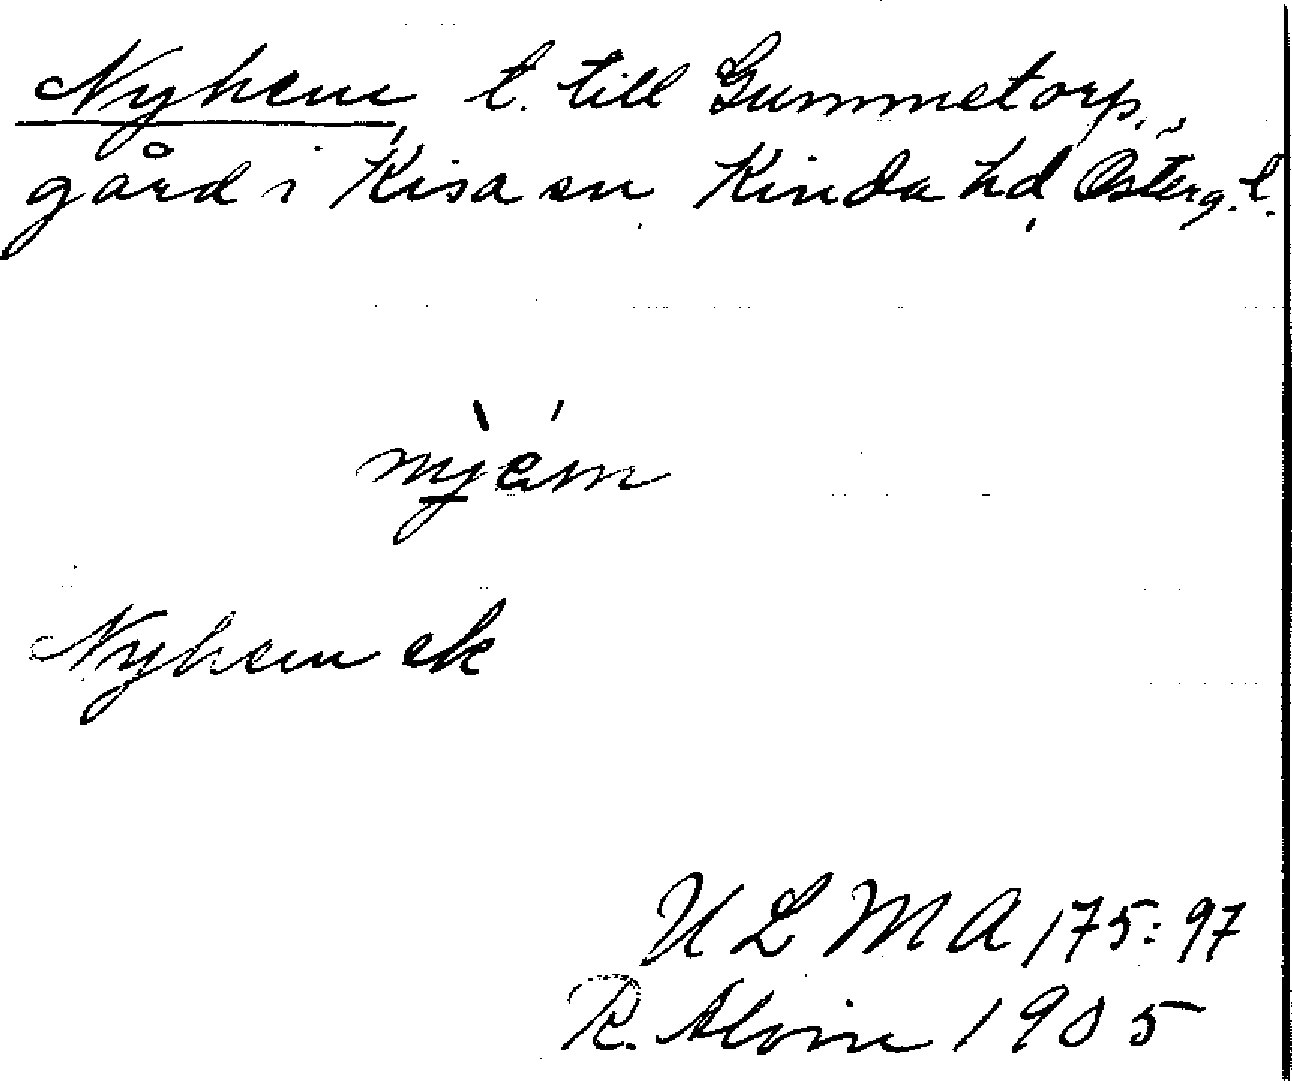 Nyhem, t. till Gummetorp,
gård i Kisa sn Kinda hd, Österg. l.
Nyhem ek
ULMA 175:97
R. Alvin 1905